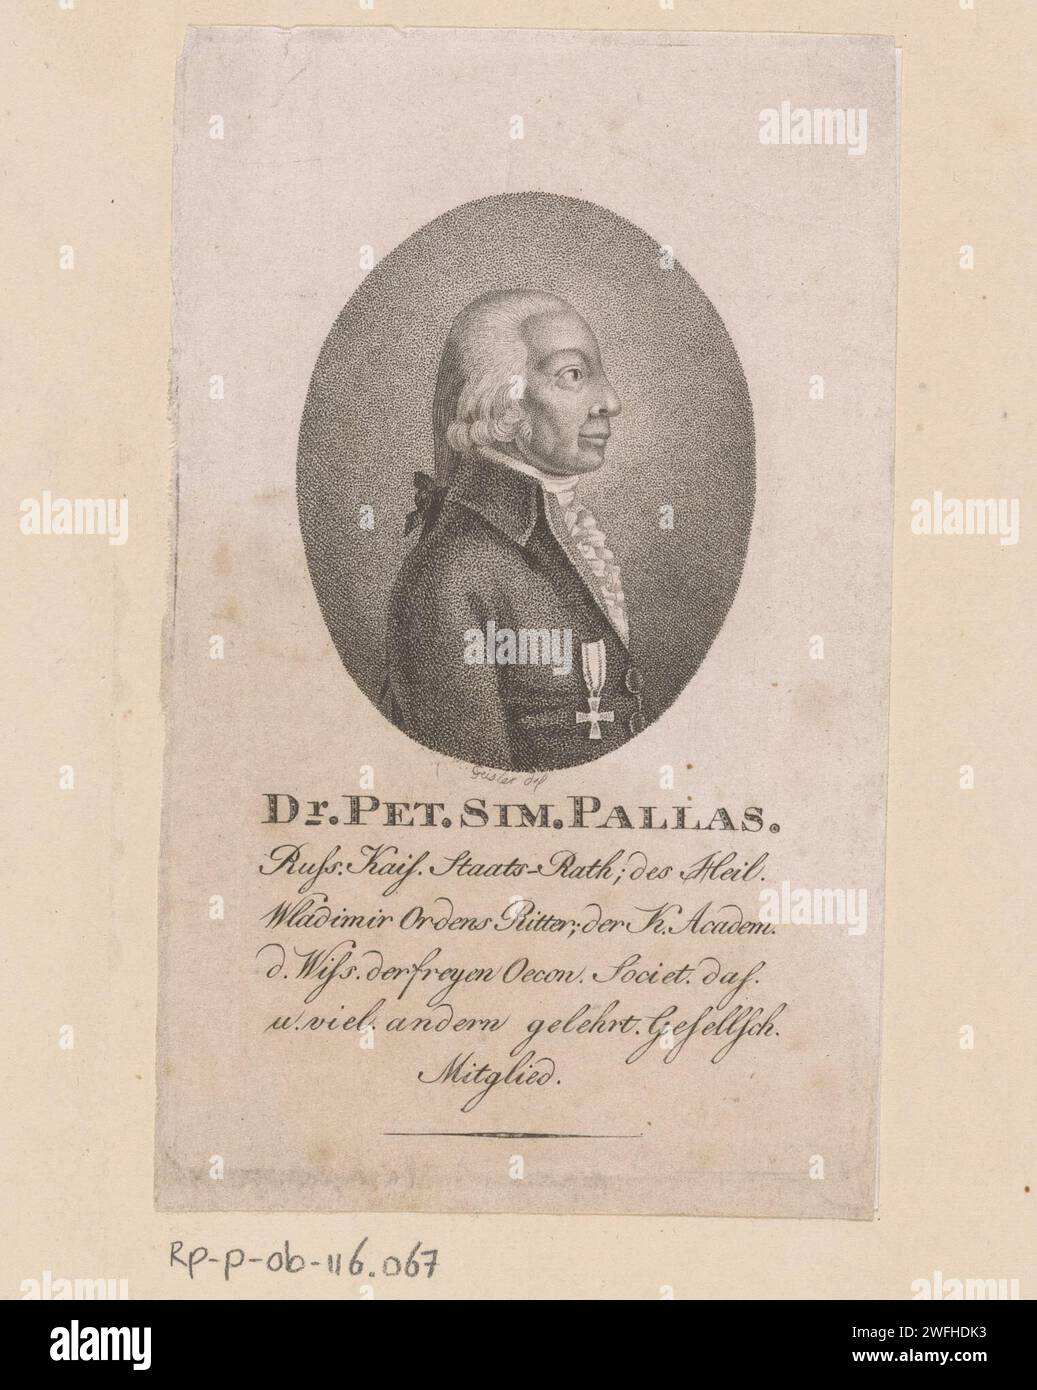 Geisler del
Dr. PET. SIM. PALLAS.
Ruſs. Kaiſ. Staats-Rath; des Heil.
Wladimir Ordens Ritter; der K. Academ.
d. Wiſs. der freyen Oecon. Societ. daſ.
u. viel. andern gelehrt. Geſellſch.
Mitglied.
RP-P-OB-116.067
alamy
Image ID: 2WFHDK3
www.alamy.com